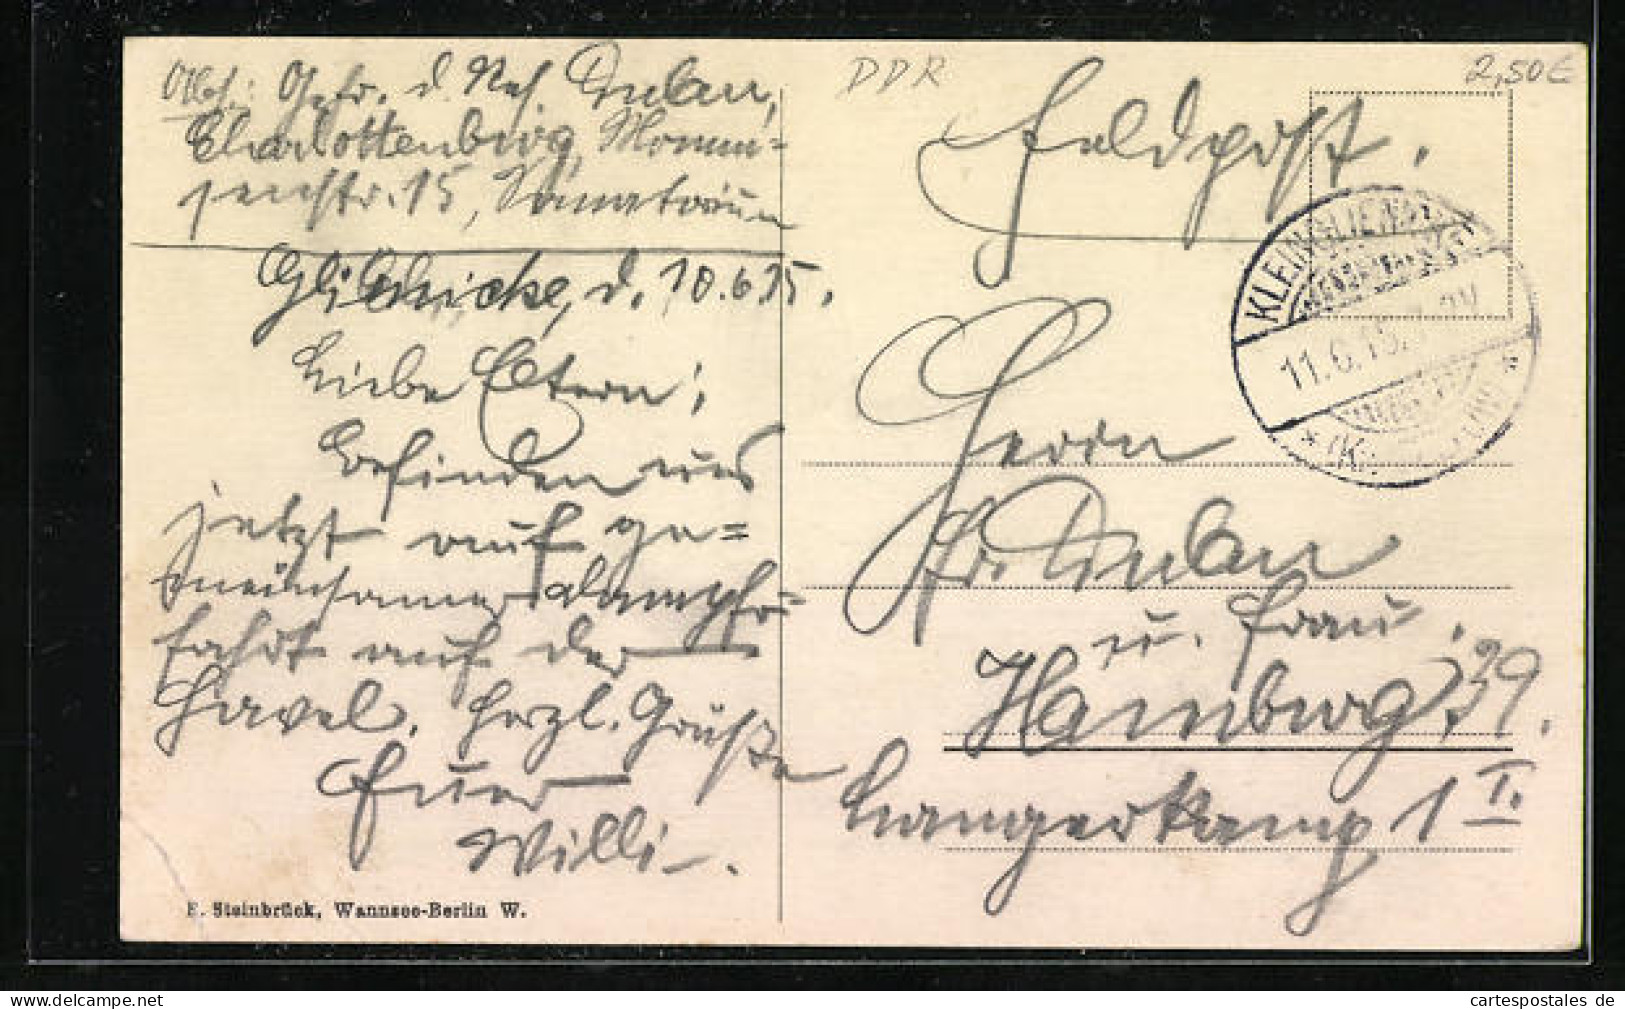 Abs.: Gefr. d. Res. Duban,
Charlottenburg, Momm=
senstr. 15, Sanatorium
Glienicke, d. 10.6.15.
Liebe Eltern;
Befinden uns
jetzt auf ge=
meinsamer Dampfer=
fahrt auf der
Havel. Herzl. Grüße
Euer
Willi.
E. Steinbrück, Wannsee-Berlin W.
DDR
2,50€
Feldpost.
KLEIN GLIENICKE
11.6.15.
Herrn
Fr. Duban
u. Frau,
Hamburg, 39.
Langerkamp 1 I.
oldthing.de
cartespostales de